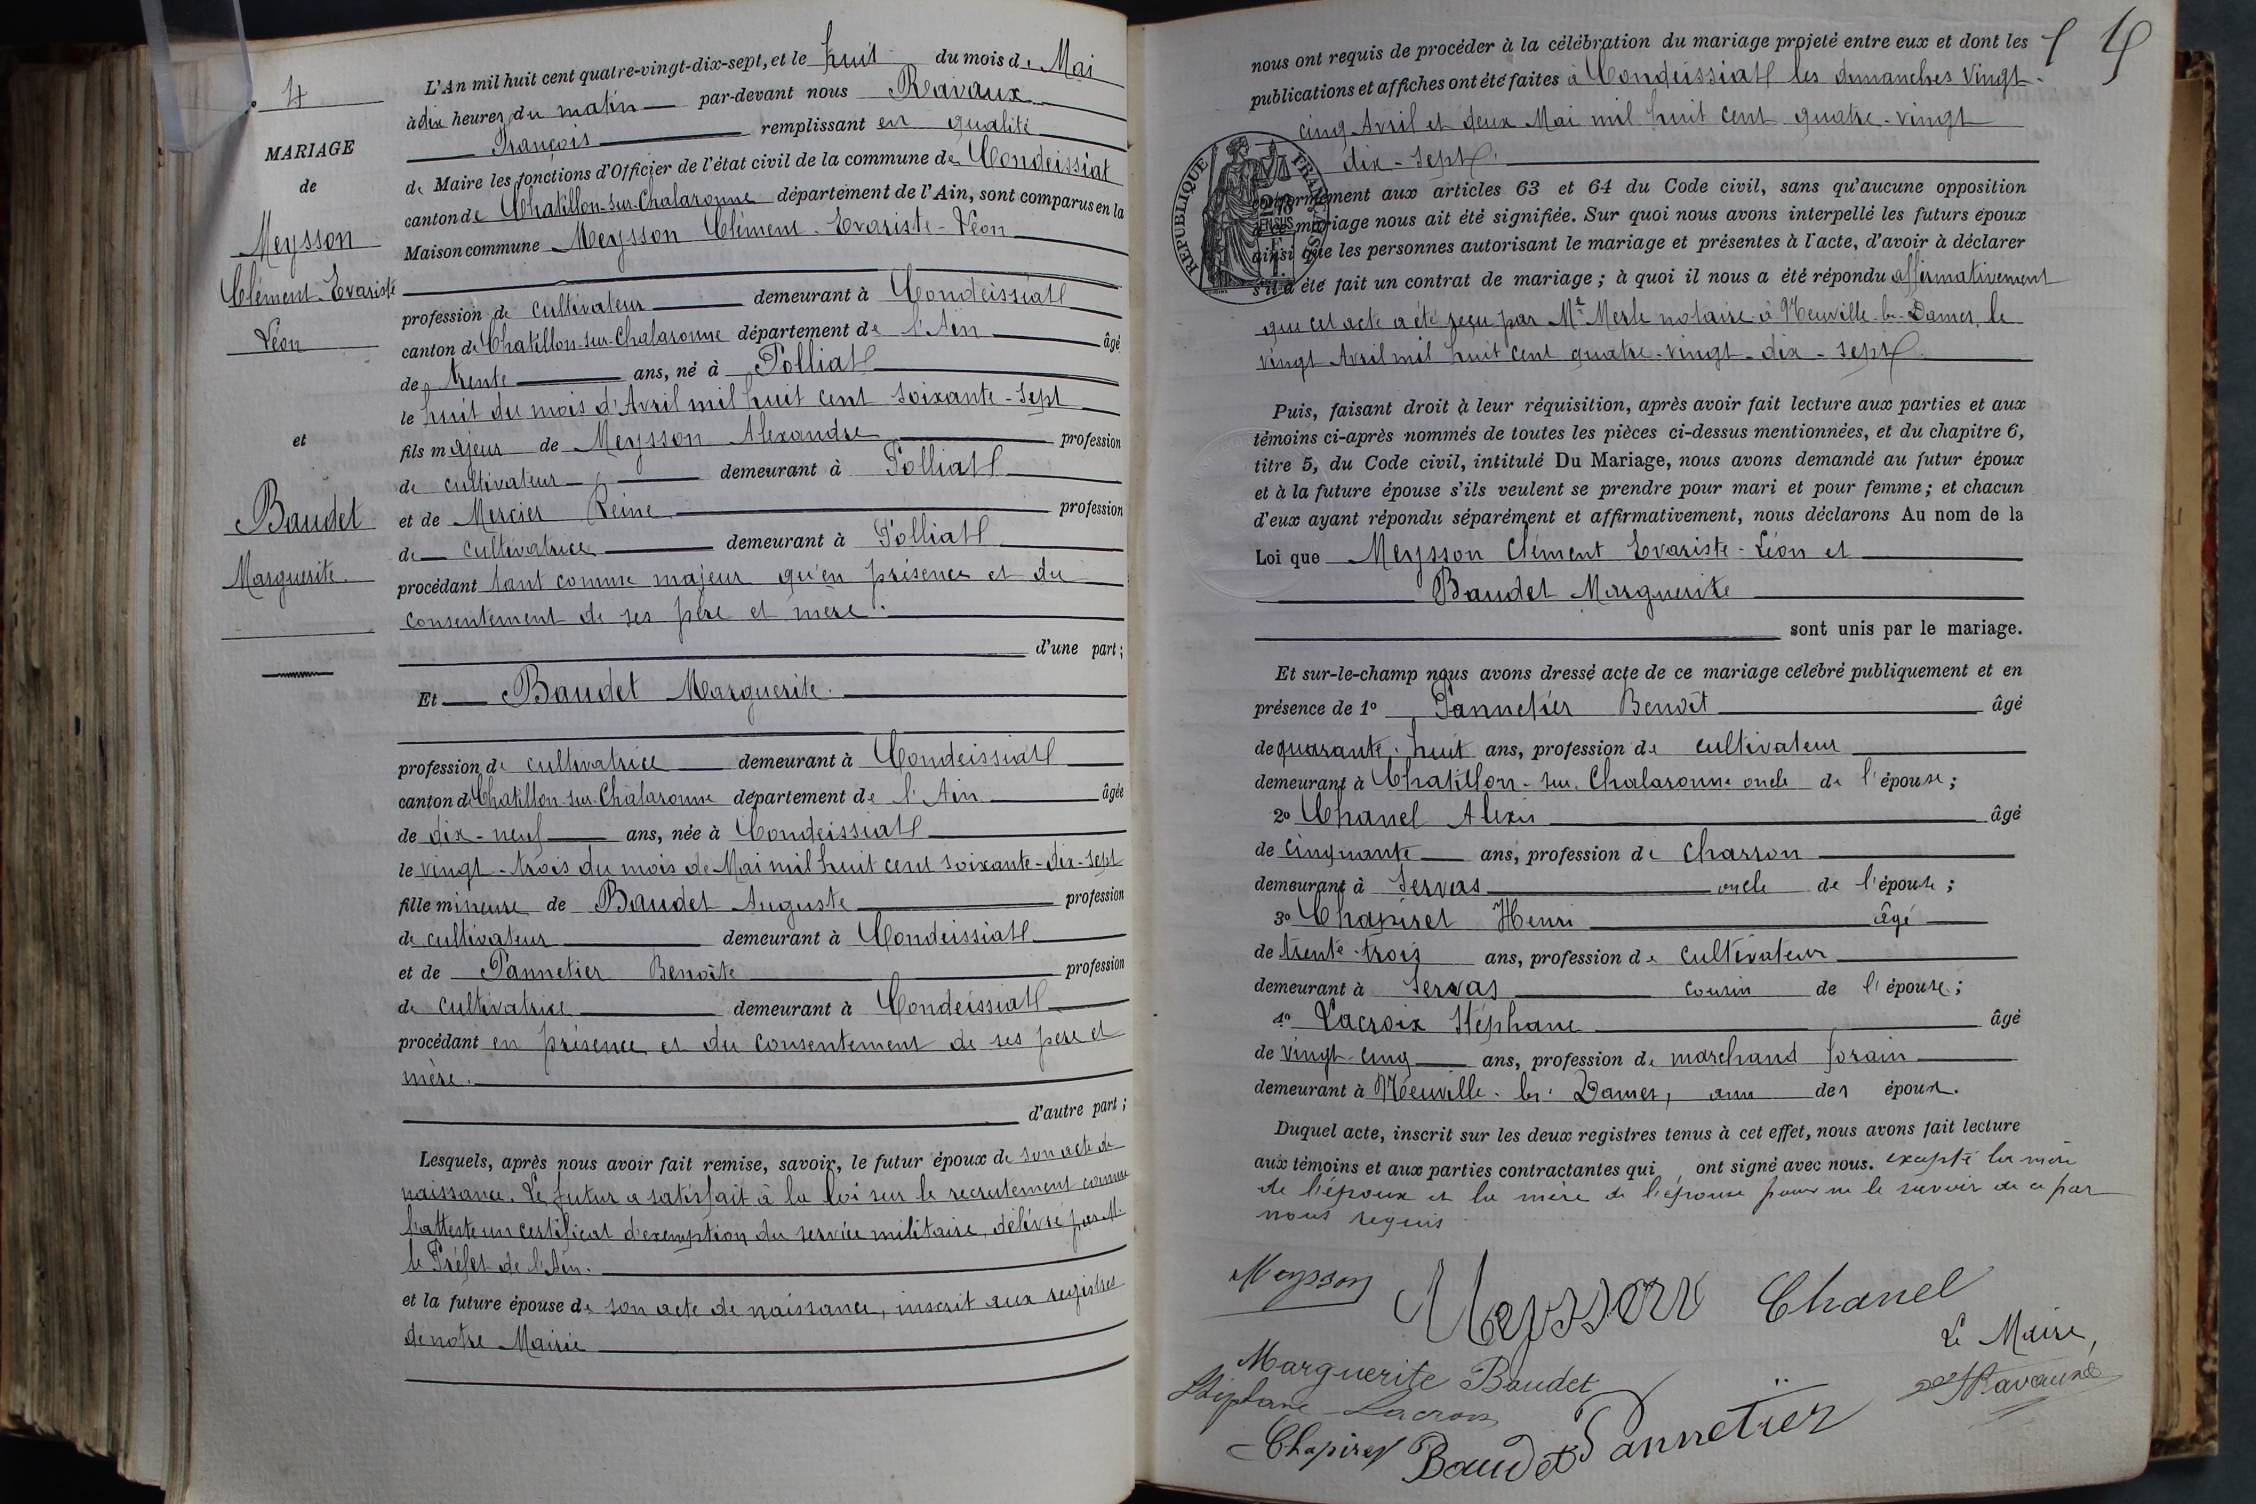 4
MARIAGE
de
Meysson
Clément-Evariste
Léon
et
Baudet
Marguerite.
L'An mil huit cent quatre-vingt-dix-sept, et le huit du mois de Mai
à dix heures du matin par-devant nous Ravaux
François remplissant en qualité
de Maire les fonctions d'Officier de l'état civil de la commune de Condeissiat
canton de Chatillon-sur-Chalaronne département de l'Ain, sont comparus en la
Maison commune Meysson Clément-Evariste-Léon
profession de cultivateur demeurant à Condeissiat
canton de Chatillon-sur-Chalaronne département de l'Ain âgé
de trente ans, né à Polliat
le huit du mois d'Avril mil huit cent soixante-sept
fils majeur de Meysson Alexandre profession
de cultivateur demeurant à Polliat
et de Mercier Reine profession
de cultivatrice demeurant à Polliat
procédant tant comme majeur qu'en présence et du
consentement de ses père et mère.
d'une part;
Et Baudet Marguerite.
profession de cultivatrice demeurant à Condeissiat
canton de Chatillon-sur-Chalaronne département de l'Ain âgée
de dix-neuf ans, née à Condeissiat
le vingt-trois du mois de Mai mil huit cent soixante-dix-sept
fille mineure de Baudet Auguste profession
de cultivateur demeurant à Condeissiat
et de Pannetier Benoîte profession
de cultivatrice demeurant à Condeissiat
procédant en présence et du consentement de ses père et
mère.
d'autre part;
Lesquels, après nous avoir fait remise, savoir, le futur époux de son acte de
naissance. Le futur a satisfait à la loi sur le recrutement comme
l'atteste un certificat d'exemption du service militaire, délivré par M.
le Préfet de l'Ain.
et la future épouse de son acte de naissance, inscrit aux registres
de notre Mairie
4
nous ont requis de procéder à la célébration du mariage projeté entre eux et dont les
publications et affiches ont été faites à Condeissiat les dimanches vingt-
cinq Avril et deux Mai mil huit cent quatre-vingt
dix-sept.
REPUBLIQUE FRANÇAISE
conformément aux articles 63 et 64 du Code civil, sans qu'aucune opposition
à ce mariage nous ait été signifiée. Sur quoi nous avons interpellé les futurs époux
ainsi que les personnes autorisant le mariage et présentes à l'acte, d'avoir à déclarer
s'il a été fait un contrat de mariage; à quoi il nous a été répondu affirmativement
que cet acte a été reçu par Me Merle notaire à Neuville-les-Dames, le
vingt Avril mil huit cent quatre-vingt-dix-sept.
Puis, faisant droit à leur réquisition, après avoir fait lecture aux parties et aux
témoins ci-après nommés de toutes les pièces ci-dessus mentionnées, et du chapitre 6,
titre 5, du Code civil, intitulé Du Mariage, nous avons demandé au futur époux
et à la future épouse s'ils veulent se prendre pour mari et pour femme; et chacun
d'eux ayant répondu séparément et affirmativement, nous déclarons Au nom de la
Loi que Meysson Clément Evariste-Léon et
Baudet Marguerite
sont unis par le mariage.
Et sur-le-champ nous avons dressé acte de ce mariage célébré publiquement et en
présence de 1º Pannetier Benoît âgé
de quarante-huit ans, profession de cultivateur
demeurant à Chatillon-sur-Chalaronne oncle de l'épouse;
2º Chanel Alexis âgé
de cinquante ans, profession de charron
demeurant à Servas oncle de l'épouse;
3º Chapiret Henri âgé
de trente-trois ans, profession de cultivateur
demeurant à Servas cousin de l'épouse;
4º Lacroix Stéphane âgé
de vingt-cinq ans, profession de marchand forain
demeurant à Neuville-les-Dames, ami des époux.
Duquel acte, inscrit sur les deux registres tenus à cet effet, nous avons fait lecture
aux témoins et aux parties contractantes qui ont signé avec nous. excepté la mère
de l'époux et la mère de l'épouse pour ne le savoir de ce par
nous requis
Meysson Meysson Chanel
Le Maire,
Marguerite Baudet
Ravaux
Stéphane Lacroix
Chapiret Baudet Pannetier